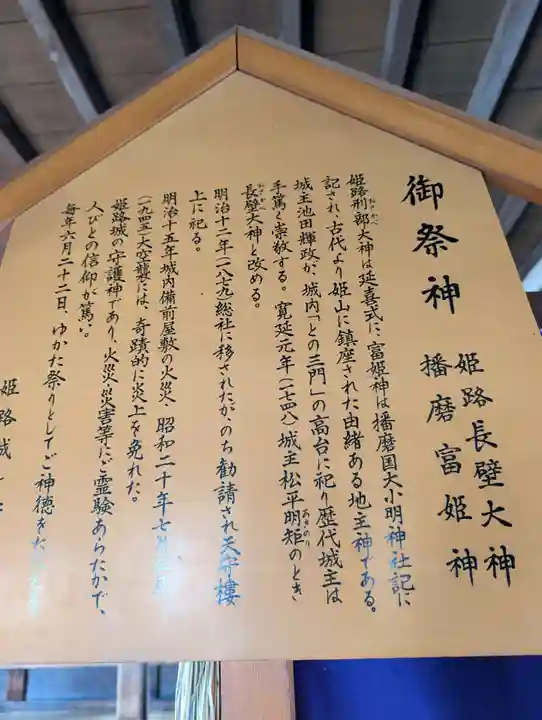 御祭神
姫路長壁大神
播磨富姫神
姫路刑部大神は延喜式に、富姫神は播磨国大小明神社記に
おさかべ
記され、古代より姫山に鎮座された由緒ある地主神である。
城主池田輝政が、城内「との三門」の高台に祀り歴代城主は
手篤く崇敬する。寛延元年(一七四八)城主松平明矩のとき
あきのり
長壁大神と改める。
明治十二年(一八七九)総社に移されたが、のち勧請され天守楼
上に祀る。
明治十五年城内備前屋敷の火災、昭和二十年七月
(一九四五)大空襲には、奇蹟的に炎上を免れた。
姫路城の守護神であり、火災・災害等にご霊験あらたかで、
人びとの信仰が篤い。
毎年六月二十二日、ゆかた祭りとしてご神徳をた
姫路城